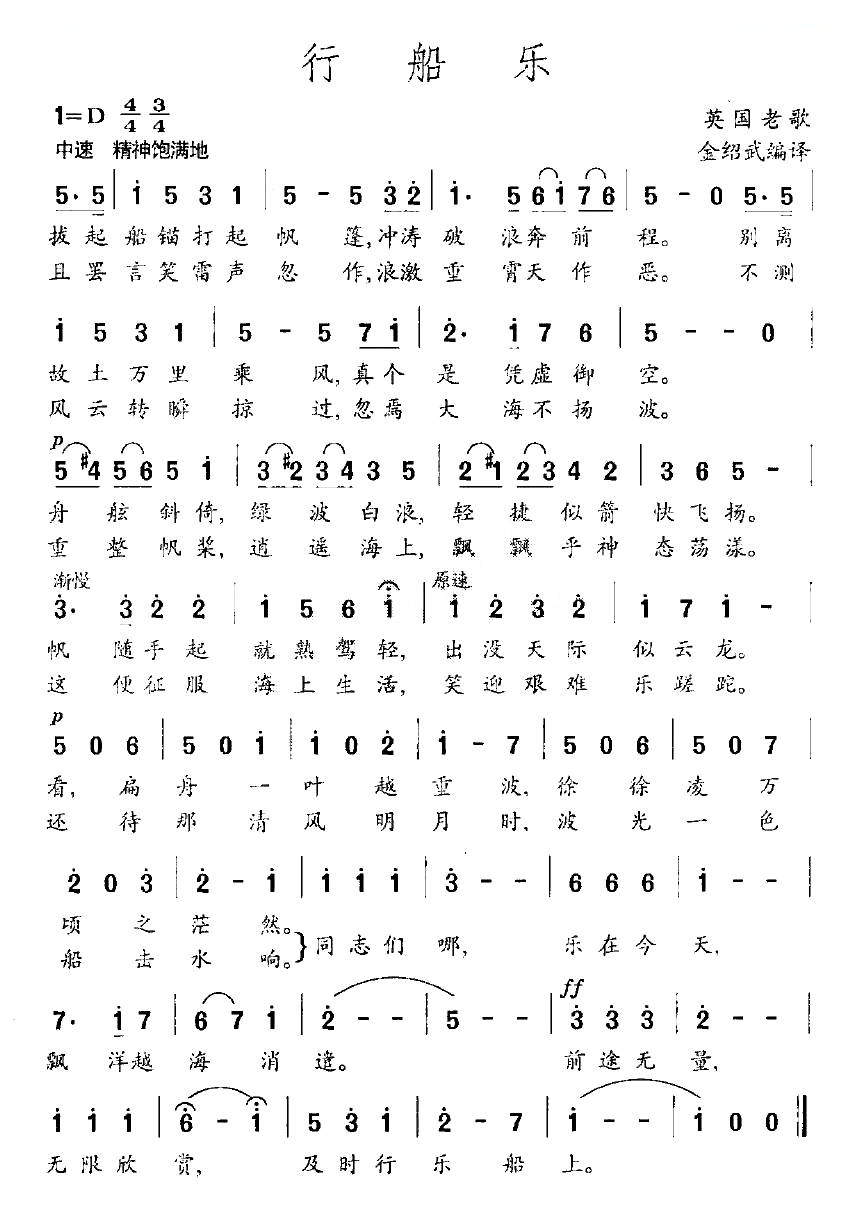 行船乐
1=D 4/4 3/4
英国老歌
中速 精神饱满地
金绍武编译
5· 5 | i 5 3 1 | 5 - 5 3 2 | i· 5 6 i 7 6 | 5 - 0 5· 5 |
拔起船锚打起帆篷,冲涛破浪奔前程。别离
且罢言笑雷声忽作,浪激重霄天作恶。不测
i 5 3 1 | 5 - 5 7 i | 2· i 7 6 | 5 - - 0
故土万里乘风,真个是凭虚御空。
风云转瞬掠过,忽焉大海不扬波。
p
5 #4 5 6 5 i | 3 #2 3 4 3 5 | 2 #1 2 3 4 2 | 3 6 5 -
舟舷斜倚,绿波白浪,轻捷似箭快飞扬。
重整帆桨,逍遥海上,飘飘乎神态荡漾。
渐慢 原速
3· 3 2 2 | 1 5 6 i | i 2 3 2 | i 7 i -
帆随手起就熟驾轻,出没天际似云龙。
这便征服海上生活,笑迎艰难乐蹉跎。
p
5 0 6 | 5 0 i | i 0 2 | i - 7 | 5 0 6 | 5 0 7
看,扁舟一叶越重波,徐徐凌万
还待那清风明月时,波光一色
2 0 3 | 2 - i | i i i | 3 - - | 6 6 6 | i - -
顷之茫然。
船击水响。}同志们哪,乐在今天,
ff
7· i 7 | 6 7 i | 2 - - | 5 - - | 3 3 3 | 2 - -
飘洋越海消遣。前途无量,
i i i | 6 - i | 5 3 i | 2 - 7 | i - - | i 0 0 ‖
无限欣赏,及时行乐船上。